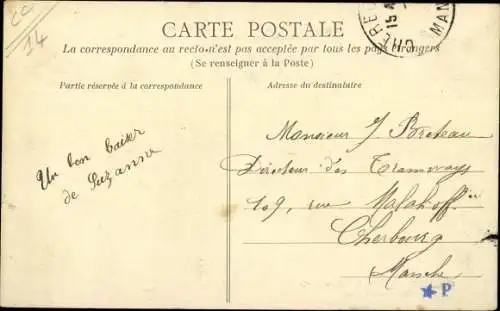 CARTE POSTALE
La correspondance au recto n'est pas acceptée par tous les pays étrangers
(Se renseigner à la Poste)
Partie réservée à la correspondance
Adresse du destinataire
Un bon baiser
de Suzanne
Monsieur J. Breteau
Directeur des Tramways
109, rue Malakoff
Cherbourg
Manche
14
15
MAN
P